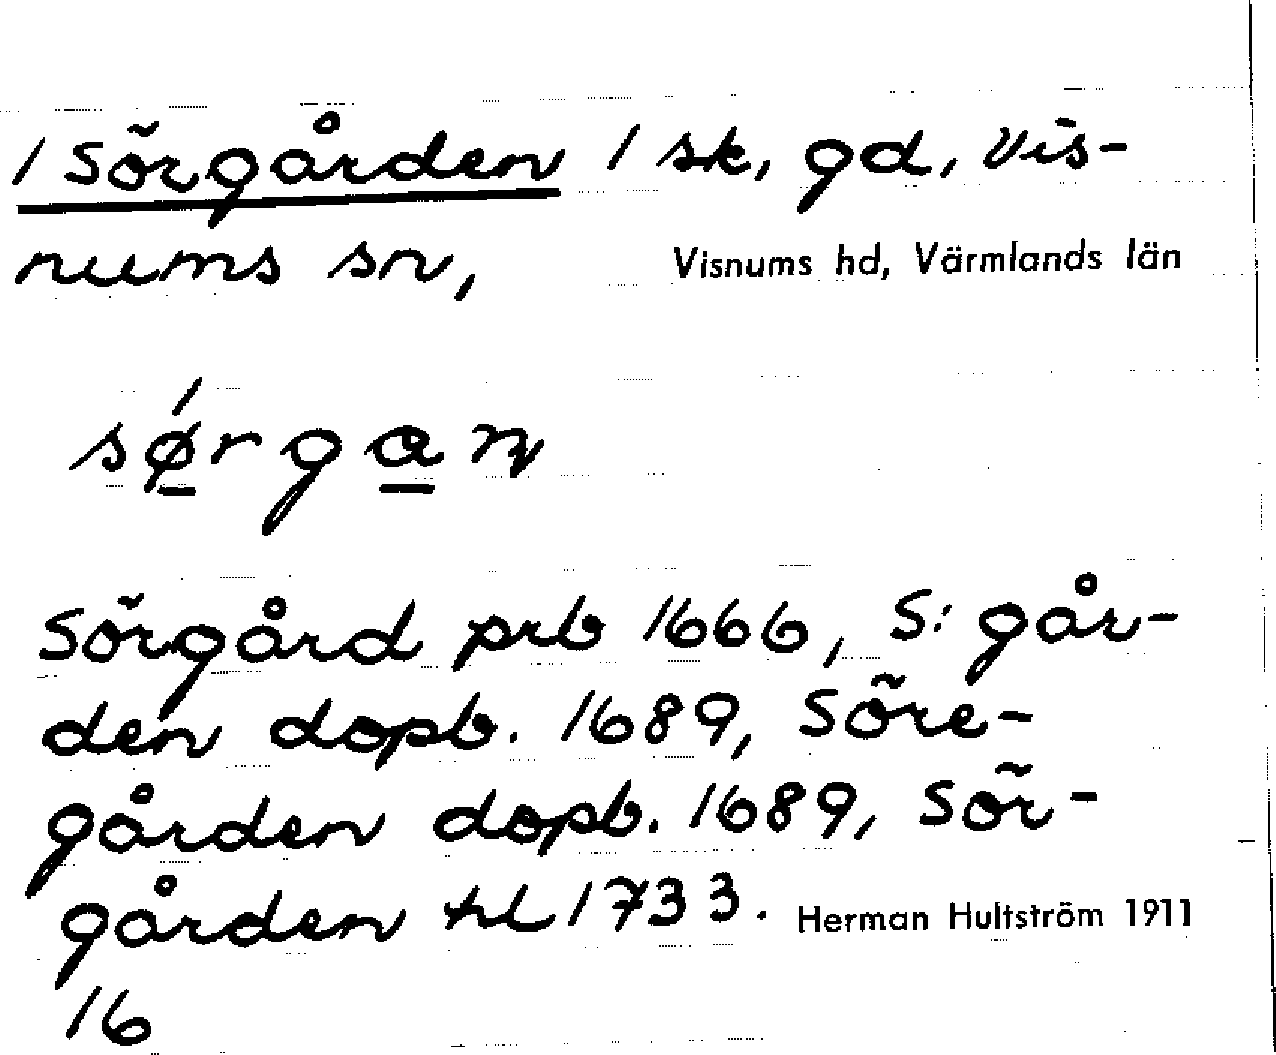 / Sörgården / sk, gd, Vis-
nums sn, Visnums hd, Värmlands län
sǿrgan
Sörgård prb 1666, S: går-
den dopb. 1689, Söre-
gården dopb. 1689, Sör-
gården hl 1733. Herman Hultström 1911
16